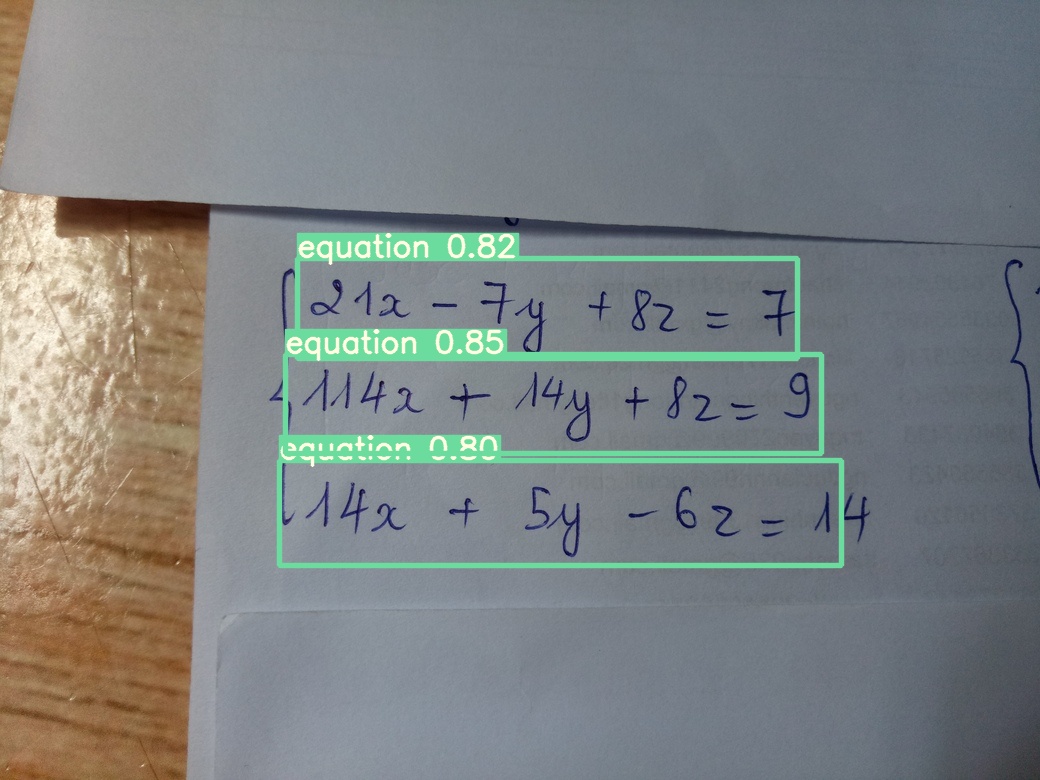 equation 0.82
21x - 7y + 8z = 7
equation 0.85
114x + 14y + 8z = 9
equation 0.80
14x + 5y - 6z = 14